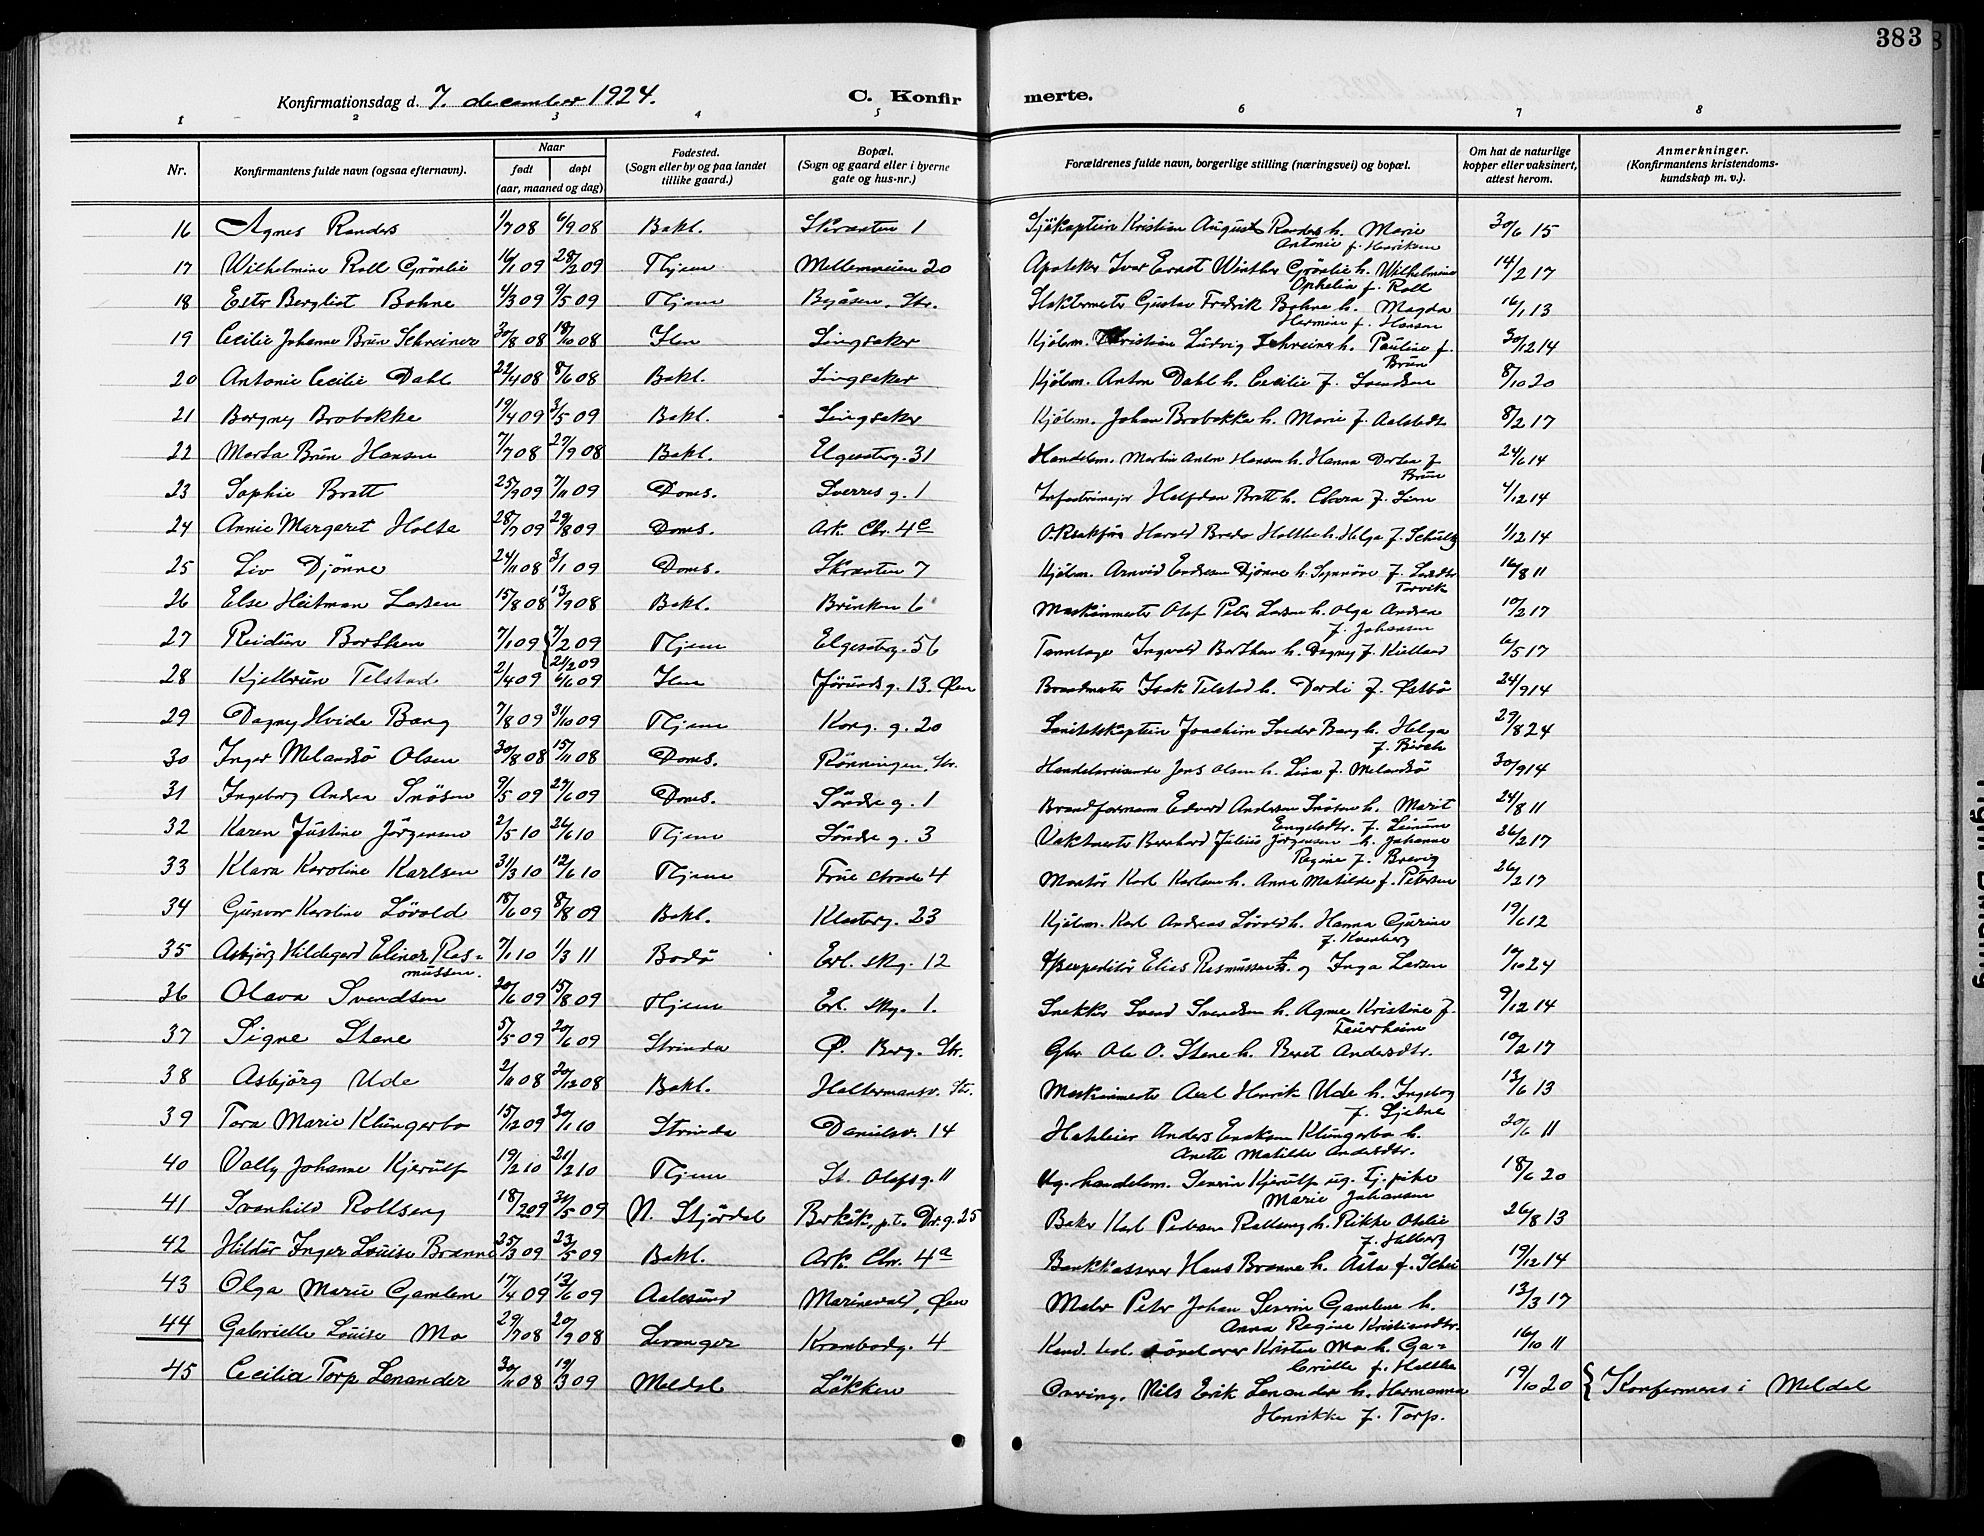 383
Konfirmationsdag d. 7. december 1924. C. Konfirmerte.
1 2 3 4 5 6 7 8
Nr. Konfirmantens fulde navn (ogsaa efternavn). Naar født døpt (aar, maaned og dag) Fødested. (Sogn eller by og paa landet tillike gaard.) Bopæl. (Sogn og gaard eller i byerne gate og hus-nr.) Forældrenes fulde navn, borgerlige stilling (næringsvei) og bopæl. Om hat de naturlige kopper eller vaksinert, attest herom. Anmerkninger. (Konfirmantens kristendomskundskap m. v.).
16 Agnes Randers 1/7 08 6/9 08 Bakl. 1 Sjökaptein Kristian August Randers h. Marie 30/6 15
Antonie f. Henriksen
17 Wilhelmine Roll Grönlie 16/1 09 28/2 09 Hjem Mellemveien 20 Apoteker Ivar Ernst Winther Grönlie h. Wilhelmine 14/2 17
Ophelia f. Roll
18 Ester Bergliot Bohne 4/3 09 9/5 09 Hjem Byåsen, Str. Gustav Fredrik Bohne h. Magda 16/1 13
Hermine f. Hansen
19 Cecilie Johanne Brün Schreiner 30/8 08 18/10 08 Ilen Singsaker Kjölm. Kristian Ludvig Schreiner h. Pauline f. 30/12 14
Brün
20 Antonie Cecilie Dahl 22/4 08 8/6 08 Bakl. Singsaker Kjölm. Anton Dahl h. Cecilie f. Svendsen 8/10 20
21 Borgny Brobakke 19/4 09 3/5 09 Bakl. Singsaker Kjölm. Johan Brobakke h. Marie f. 8/2 17
22 Marta Brün Hansen 7/7 08 27/9 08 Bakl. Elgesetrg. 31 Handelsm. Martin Anton Hansen h. Hanna Dortea f. 24/6 14
Brün
23 Sophie Bratt 25/9 09 7/11 09 Doms. Sverres g. 1 Halfdan Bratt h. Clara f. 4/12 14
24 Annie Margaret Holte 28/7 09 29/8 09 Doms. Ark. Chr. 4c O.R.sakfører Harald Bredo Holthe h. Helga f. Schulz 1/12 14
25 Liv Djönne 24/11 08 3/1 09 Doms. 7 Kjölm. Arnvid Endresen Djönne h. Synnöve f. 16/8 11
Torvik
26 Else Heitman Larsen 15/8 08 13/9 08 Bakl. Brinken 6 Maskinmester Olaf Peter Larsen h. Olga Andrea 10/2 17
f. Johansen
27 Reidun Barthen 7/1 09 7/2 09 Hjem Elgesetrg. 56 Tannlæge Ingvald Barthen h. Dagny f. Kielland 6/5 17
28 Kjellrun Telstad 2/4 09 6/6 09 Ilen Jörunds g. 13. Øen Brandmester Isak Telstad h. Dordi f. Østbö 24/9 14
29 Dagny Hvide Bang 7/8 09 31/10 09 Hjem Kong. g. 20 Sanitetskaptein Joachim Sveder Bang h. Helga 29/8 24
f. Birch
30 Inger Melandsö Olsen 30/8 08 15/11 08 Doms. Rönningen, Str. Handelsreisende Jens Olsen h. Lisa f. Melandsö 30/9 14
31 Ingeborg Andrea Snösen 9/5 09 27/6 09 Doms. Söndre g. 1 Brandformann Edvard Andersen Snösen h. Marit 24/8 11
Engelsdtr. f. Leinum
32 Karen Justine Jörgensen 2/5 10 26/6 10 Hjem Söndre g. 3 Vaktmester Bernhard Julius Jörgensen h. Johanne 26/2 17
Regine f. Brevig
33 Klara Karoline Karlsen 31/3 10 12/6 10 Hjem Frue strade 4 Montör Karl Karlsen h. Anna Matilde f. Petersen 26/2 17
34 Gunvor Karoline Lövold 18/6 09 8/8 09 Bakl. Klosterg. 23 Kjölm. Karl Andreas Lövold h. Hanna Gurine 19/6 12
f. Kvenberg
35 Asbjörg Hildegard Elinor Ras- 7/1 10 1/3 11 Bodö Erl. Skg. 12 Ekspeditör Elias Rasmussen og Inga Larsen 10/10 24
mussen.
36 Olava Svendsen 20/6 09 15/8 09 Hjem Erl. Skg. 1. Snekker Svend Svendsen h. Agnes Kristine f. 9/12 14
37 Signe Stene 5/5 09 20/6 09 Strinda Ø. Berg. Str. Gbr. Ole O. Stene h. Beret Andersdtr. 10/2 17
38 Asbjörg Ude 2/11 08 20/12 08 Bakl. Haltermansv. Str. Maskinmester Axel Henrik Ude h. Ingeborg 13/6 13
f. Gjelne
39 Tora Marie Klungerbo 15/12 09 30/1 10 Strinda Danielsv. 14 Anders Klungerbo h. 20/6 11
Anette Matilde Andersdtr.
40 Vally Johanne Kjerulf 19/2 10 21/2 10 Hjem St. Olafsg. 11 Ug. handelsm. Severin Kjerulf ug. tj. pike 18/6 20
Marie Johansen
41 Svanhild Rollseng 18/2 09 31/5 09 N. Stjördal Berkåk, p.t. Dr. g. 25 Baker Karl Pedersen Rollseng h. Rikke Otelie 26/8 13
f. Halberg
42 Hildur Inger Louise Brænne 25/3 09 23/5 09 Bakl. Ark. Chr. 4a Bankkasserer Hans Brænne h. Asta f. Schei 19/12 14
43 Olga Marie Gamlem 17/4 09 13/6 09 Aalesund Marinevold, Øen Maler Peter Johan Severin Gamlem h. 13/3 17
Anna Regine Kristiansdtr.
44 Gabrielle Louise Mo 29/7 08 20/9 08 Levanger Krambodg. 4 Kand. teol. Kristen Mo h. Ga- 16/10 11
brielle f. Holthe
45 Cecilia Torp Lenander 30/11 08 19/3 09 Meldal Lökken Overing. Nils Erik Lenander h. Hermanna 19/10 20 { Konfirmeres i Meldal
Henrikke f. Torp.